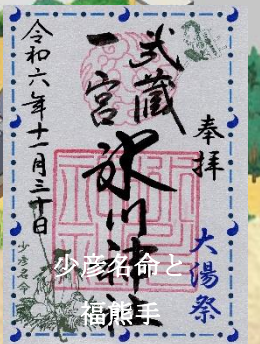 奉拝
大湯祭
武蔵
一宮
氷川神社
令和六年十一月三十日
少彦名命
少彦名命と
福熊手